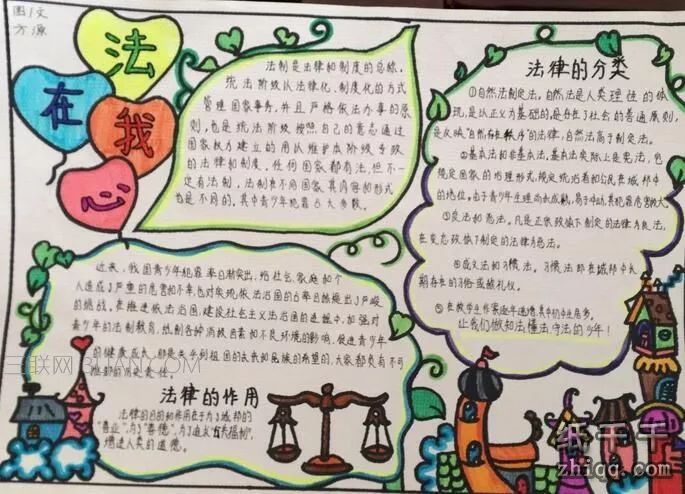 图/文
方源
法
在
我
心
法制是法律和制度的总称,
统治阶级以法律化、制度化的方式
管理国家事务,并且严格依法办事的原
则,也是统治阶级按照自己的意志通过
国家权力建立的用以维护本阶级专政
的法律和制度。任何国家都有法,但不一
定有法制,法制在不同国家其内容和形式
也是不同的,其中青少年犯罪占大多数。
法律的分类
①自然法制定法。自然法是人类理性的体
现,是以正义为基础的,是存在于社会的普通原则,
是反映"自然存在秩序"的法律,自然法高于制定法。
②基本法和非基本法,基本法实际上是宪法,它
规定国家的治理形式,规定统治者和公民在城邦中
的地位。由于青少年生理尚未成熟,易于冲动,其犯罪危害极大。
③良法和恶法。凡是正宗政体下制定的法律为良法,
在变态政体下制定的法律为恶法。
④成文法和习惯法。习惯法即在城邦中长
期存在的习俗或称礼仪。
⑤在校学生作案逐年递增,其中初中生居多。
让我们做知法懂法守法的少年!
近来,我国青少年犯罪率日渐突出,给社会、家庭和个
人造成了严重的危害和不幸,也对实现依法治国的方略目标提出了严峻
的挑战。在推进依法治国,建设社会主义法治国的进程中,加强对
青少年的法制教育,抵制各种消极因素和不良环境的影响,促进青少年
的健康成长,那是关乎到祖国的未来和民族的希望的,大家都负有不可
推卸的历史责任。
法律的作用
法律的目的和作用在于为了城邦的
"善业",为了"善德",为了追求"优良福利",
增进人类的道德。
三联网 3LIAN.COM
纸千千
zhiqq.com